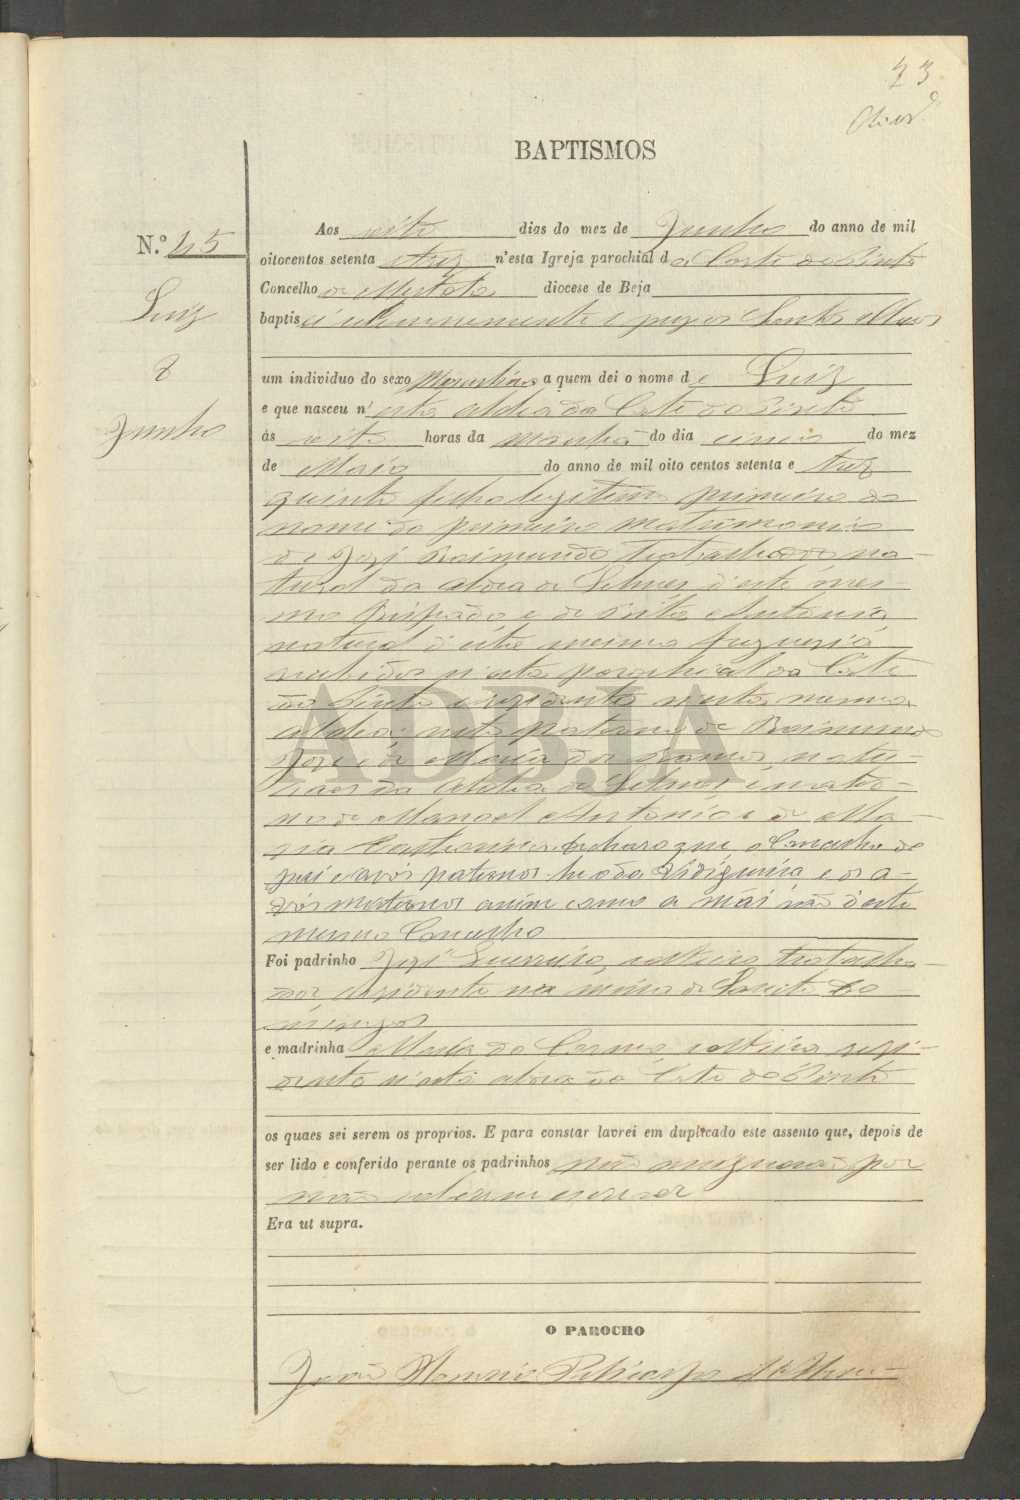 23
BAPTISMOS
N.º 45
Luiz
8
Junho
Aos oito dias do mez de Junho do anno de mil
oitocentos setenta e trez n'esta Igreja parochial da Corte do Pinto
Concelho de Mertola diocese de Beja
baptisei solemnemente e puz os Santos Oleos
um individuo do sexo Masculino a quem dei o nome de Luiz
e que nasceu n'esta aldea da Corte do Pinto
ás oito horas da manhã do dia cinco do mez
de Maio do anno de mil oito centos setenta e trez
quinto filho legitimo primeiro do
nome do primeiro matrimonio
de José Raimundo Trabalhador na-
tural da aldea de Selmes d'este mes-
mo Bispado e de Antonia
natural d'esta mesma freguezia
recebidos n'esta parochial da Corte
do Pinto e residentes n'esta mesma
aldea; neto paterno de Raimundo
José e de Maria dos Ramos, natu-
raes da Aldea de Selmes e mater-
no de Manoel Antonio e de Ma-
ria Catharina. Declaro que o Concelho do
pai e avós paternos he o da Vidigueira e os a-
vós maternos assim como a mãi são d'este
mesmo Concelho
Foi padrinho José Guerreiro, solteiro trabalha-
dor, residente na mina de Santo Do-
mingos
e madrinha Maria do Carmo, solteira resi-
dente n'esta aldea da Corte do Pinto
os quaes sei serem os proprios. E para constar lavrei em duplicado este assento que, depois de
ser lido e conferido perante os padrinhos não assignarão por
não saberem escrever
Era ut supra.
O PAROCHO
João
ADBJA